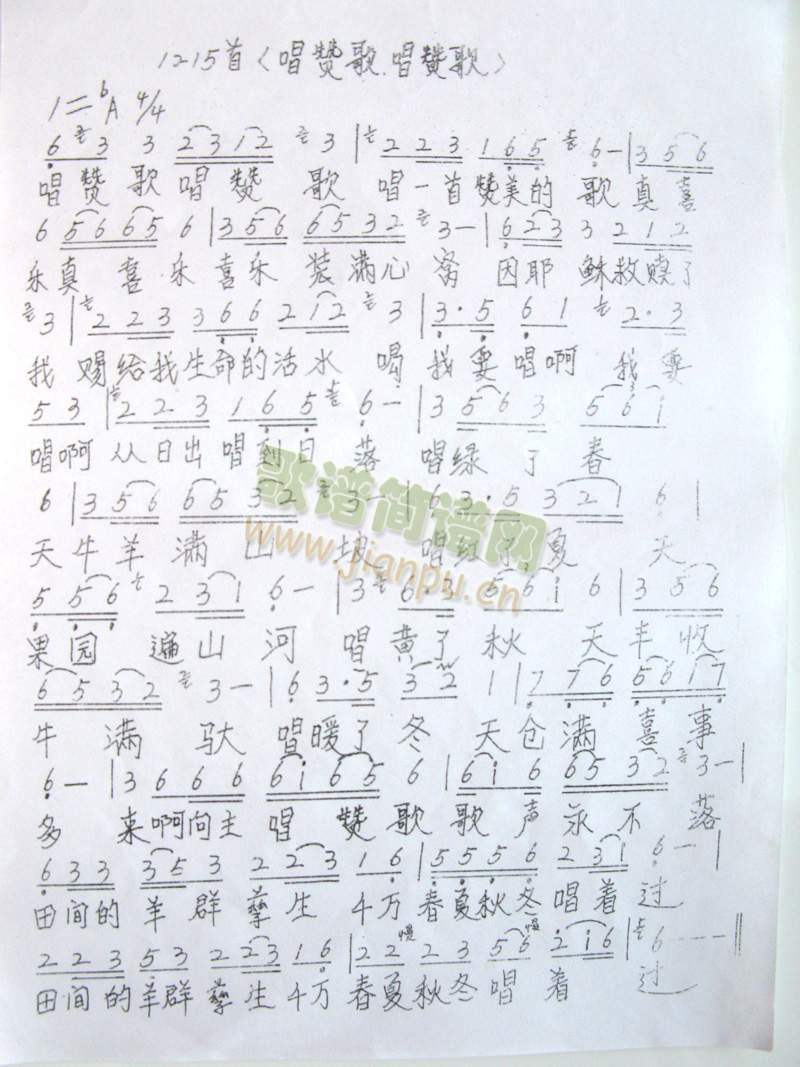 1215首〈唱赞歌.唱赞歌〉
1=ᵇA 4/4
6 3 3 2312 3 | 2 23 1 65 6— | 3 56
唱赞歌唱赞歌唱一首赞美的歌真喜
6 5665 6 | 3 56 6532 3— | 6 23 3 2 12
乐真喜乐喜乐装满心窝因耶稣救赎了
3 | 2 23 3 66 2 12 3 | 3·5 61 2·3
我赐给我生命的活水喝我要唱啊我要
53 | 2 23 1 65 6— | 3 563 56i
唱啊从日出唱到日落唱绿了春
6 | 3 56 6532 3— | 63·5 321 6 |
天牛羊满山坡唱红了夏天
5 56 2 31 6— | 3 6·3 56i6 | 3 56
果园遍山河唱黄了秋天丰收
6532 3— | 63·5 32 1 | 7 76 5617
牛满驮唱暖了冬天仓满喜事
6— | 36 66 6i65 6 | 6i6 6532 3— |
多来啊向主唱赞歌歌声永不落
633 353 2 23 16 | 5556 231 6— |
田间的羊群孳生千万春夏秋冬唱着过
2 23 53 2 23 16 | 22 慢 23 56 慢 2i6 | 6———‖
田间的羊群孳生千万春夏秋冬唱着过
歌谱简谱网
www.jianpu.cn